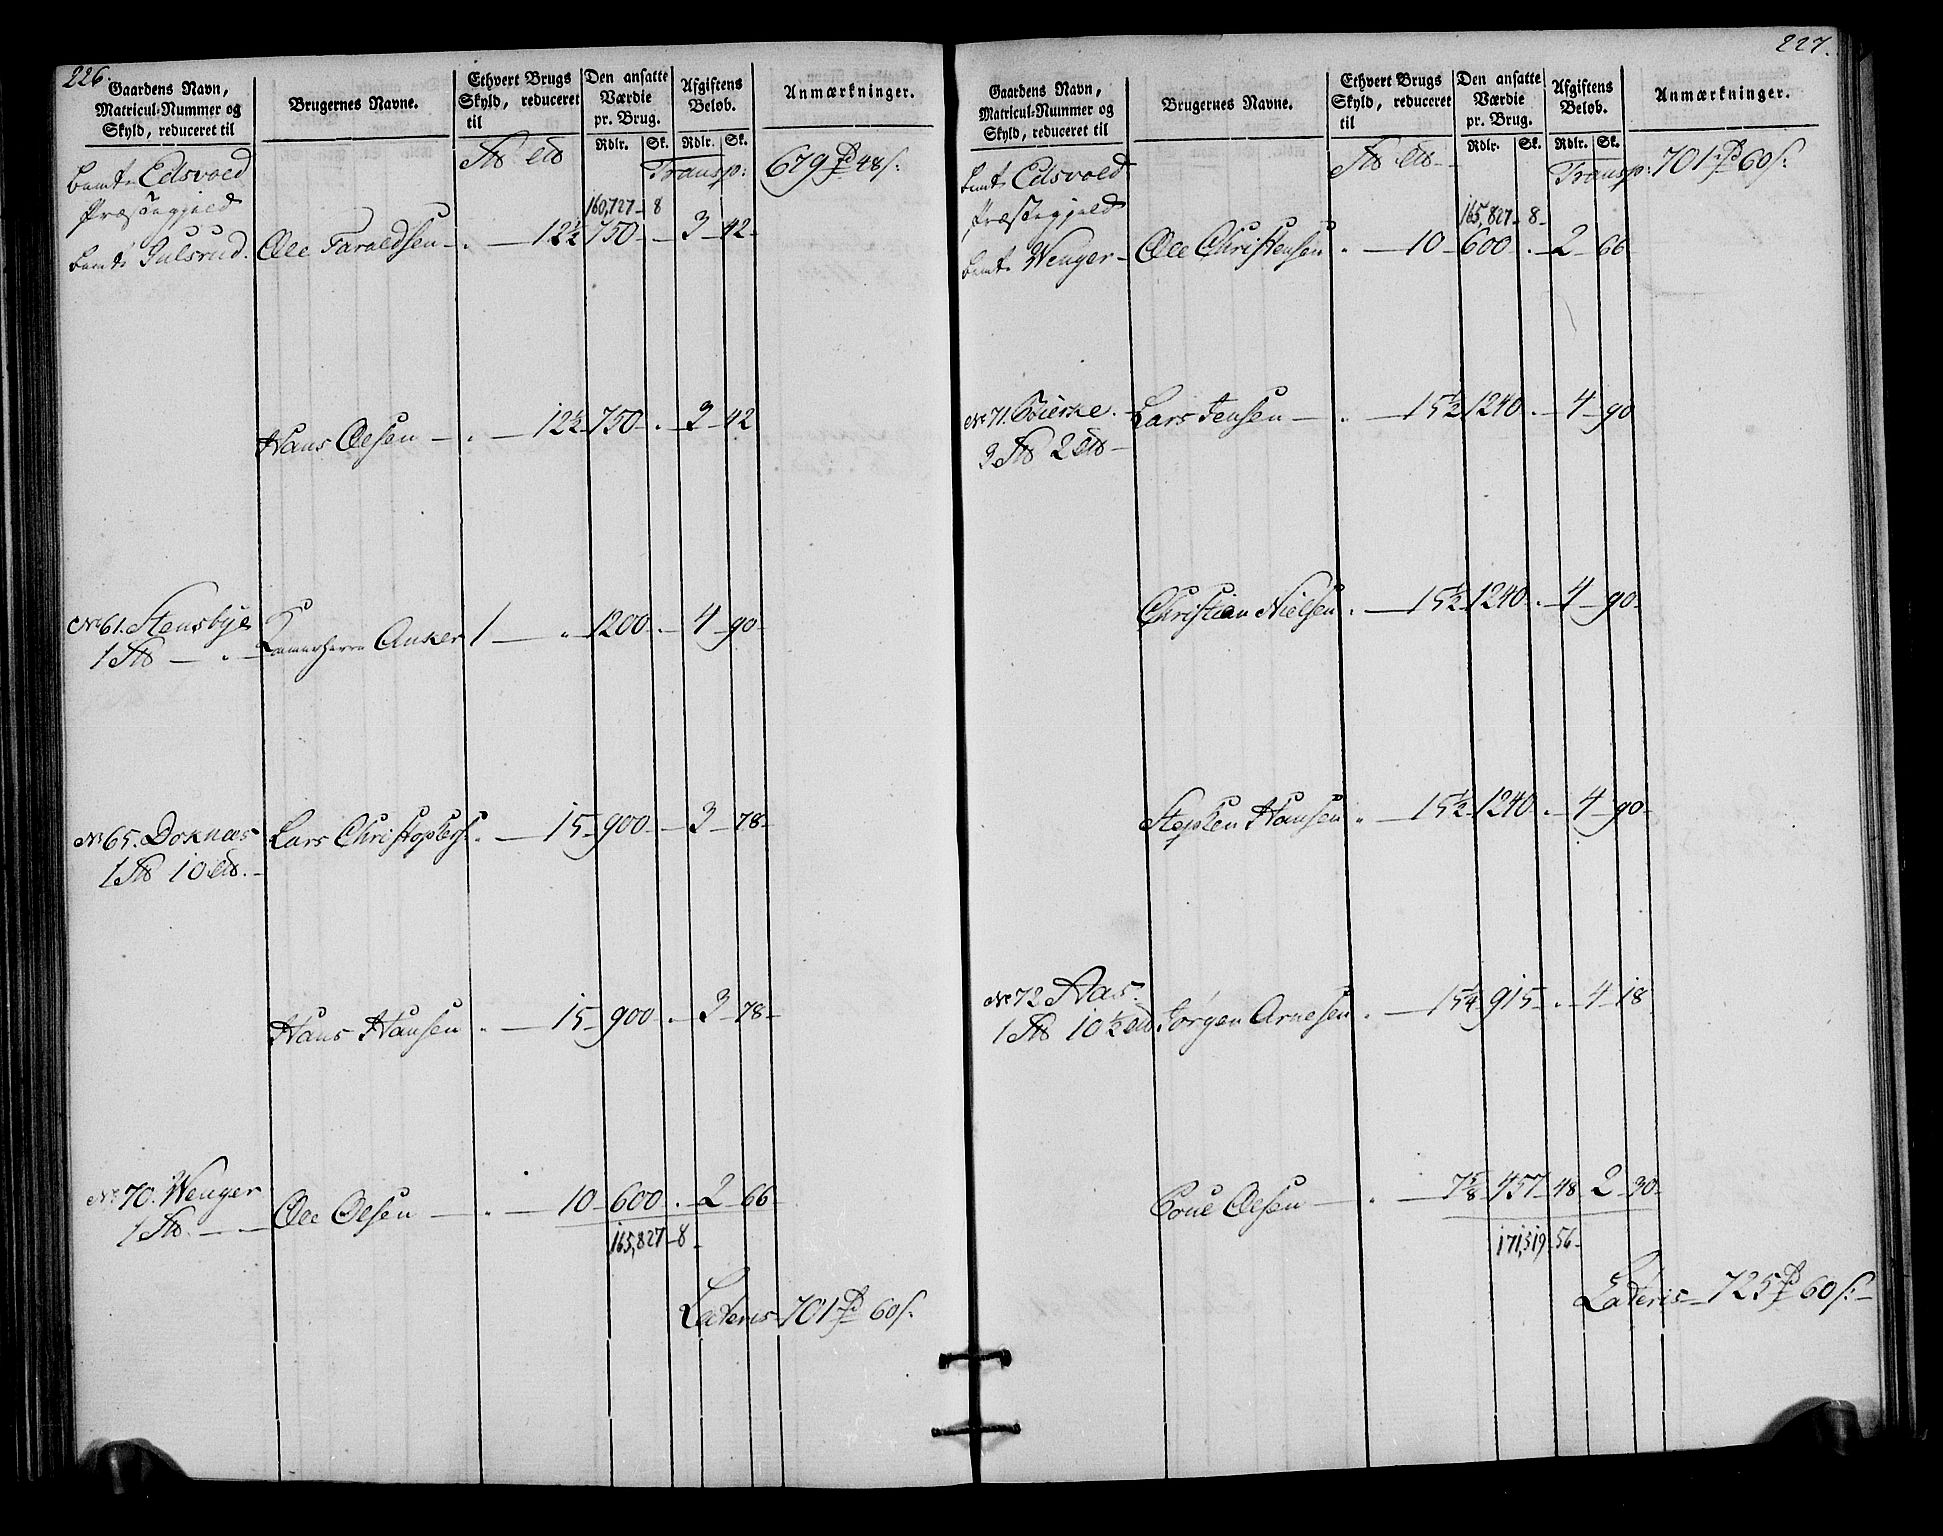 226.
Gaardens Navn, Matricul-Nummer og Skyld, reduceret til
Brugernes Navne.
Ethvert Brugs Skyld, reduceret til
Den ansatte Værdie pr. Brug.
Rdlr. Sk.
Afgiftens Beløb.
Rdlr. Sk.
Anmærkninger.
bemte Edsvold Præstegjeld
Transp: 679 48 s:
160,727 - 8
bemte Julsrud. Ole Taraldsen - " - 12½ 750 - - 3 - 42 -
Hans Olsen - " - 12½ 750 - - 3 - 42
No 61. Stensbye Kammerherre Anker 1 - " 1200 - - 4 - 90 -
1
No 65. Doknæs Lars Christophers: " - 15 - 900 - - 3 - 78 -
1 10
Hans Hansen " - 15 - 900 - 3 - 78 -
No 70. Wenger Ole Olsen - " - 10 - 600 - 2 - 66 -
1
165,827 - 8 -
Lateris 701 60 s:
227.
Gaardens Navn, Matricul-Nummer og Skyld, reduceret til
Brugernes Navne.
Ethvert Brugs Skyld, reduceret til
Den ansatte Værdie pr. Brug.
Rdlr. Sk.
Afgiftens Beløb.
Rdlr. Sk.
Anmærkninger.
bemte Edsvold Præstegjeld
Transp: 701 60 s:
165,827 - 8 -
bemte Wenger - Ole Christensen " - 10 - 600 - - 2 - 66
No 71. Bierke. - Lars Jensen - " - 15½ 1240 - - 4 - 90
3 2
Christian Nielsen " - 15½ 1240 - - 4 - 90 -
Stephen Hansen " - 15½ 1240 - 4 - 90 -
No 72 Aas. Jørgen Arnesen " - 15¼ 915 - - 4 - 18
1 10½
Poul Olsen - " - 7⅝ 457 - 48 2 - 30 -
171,519 - 56 -
Lateris - 725 60 s: -